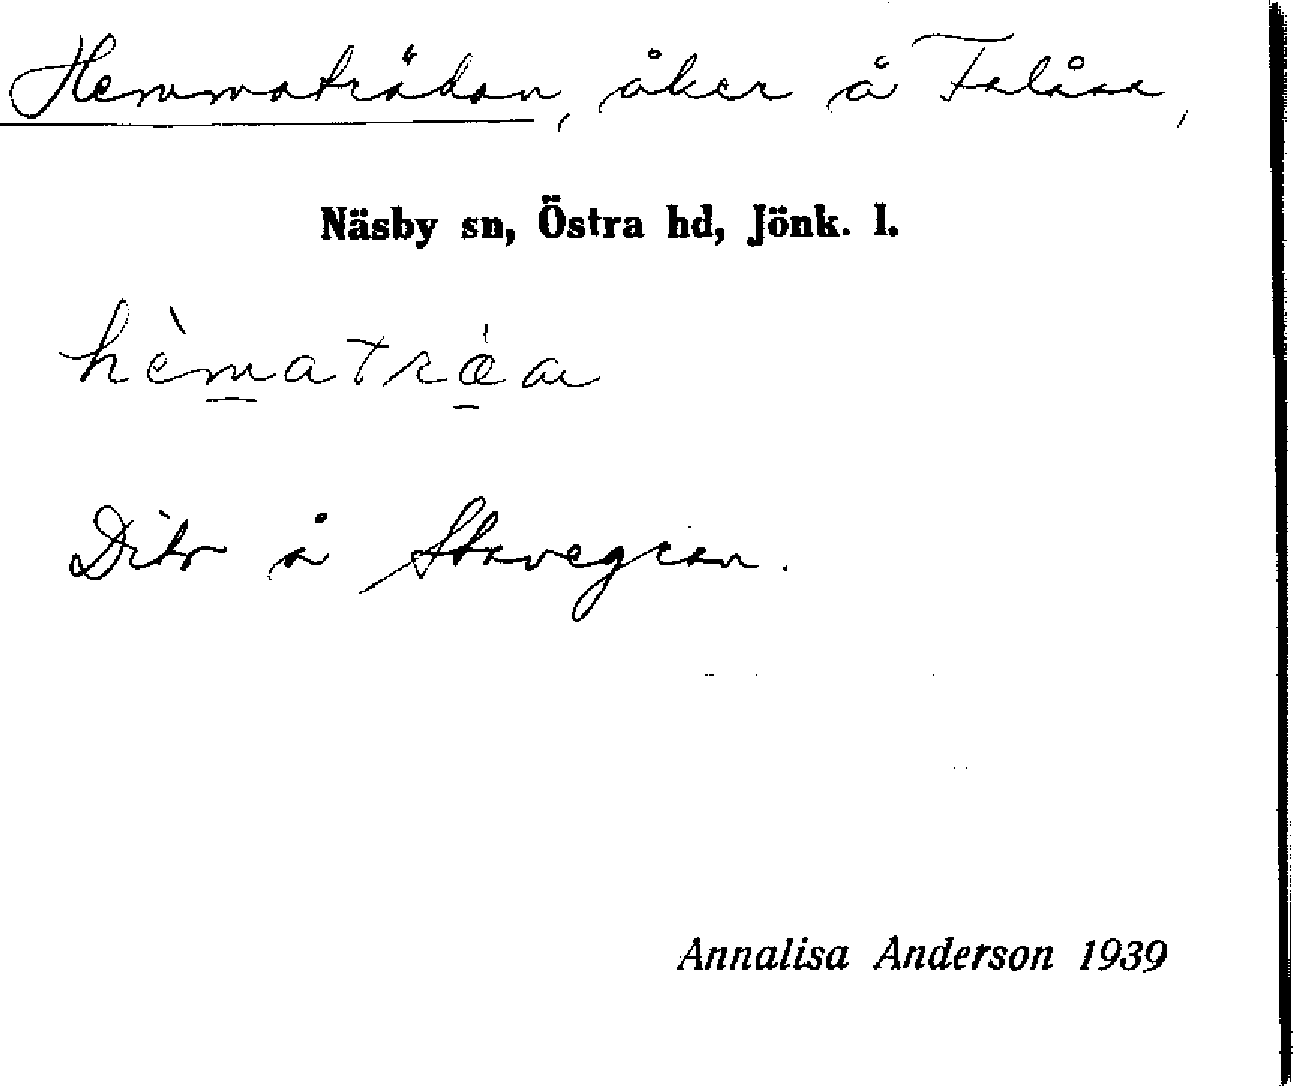 Hemmaträdan, åker å Falåsa,
Näsby sn, Östra hd, Jönk. l.
hèmatræ̀a
Dito å Stavegran.
Annalisa Anderson 1939